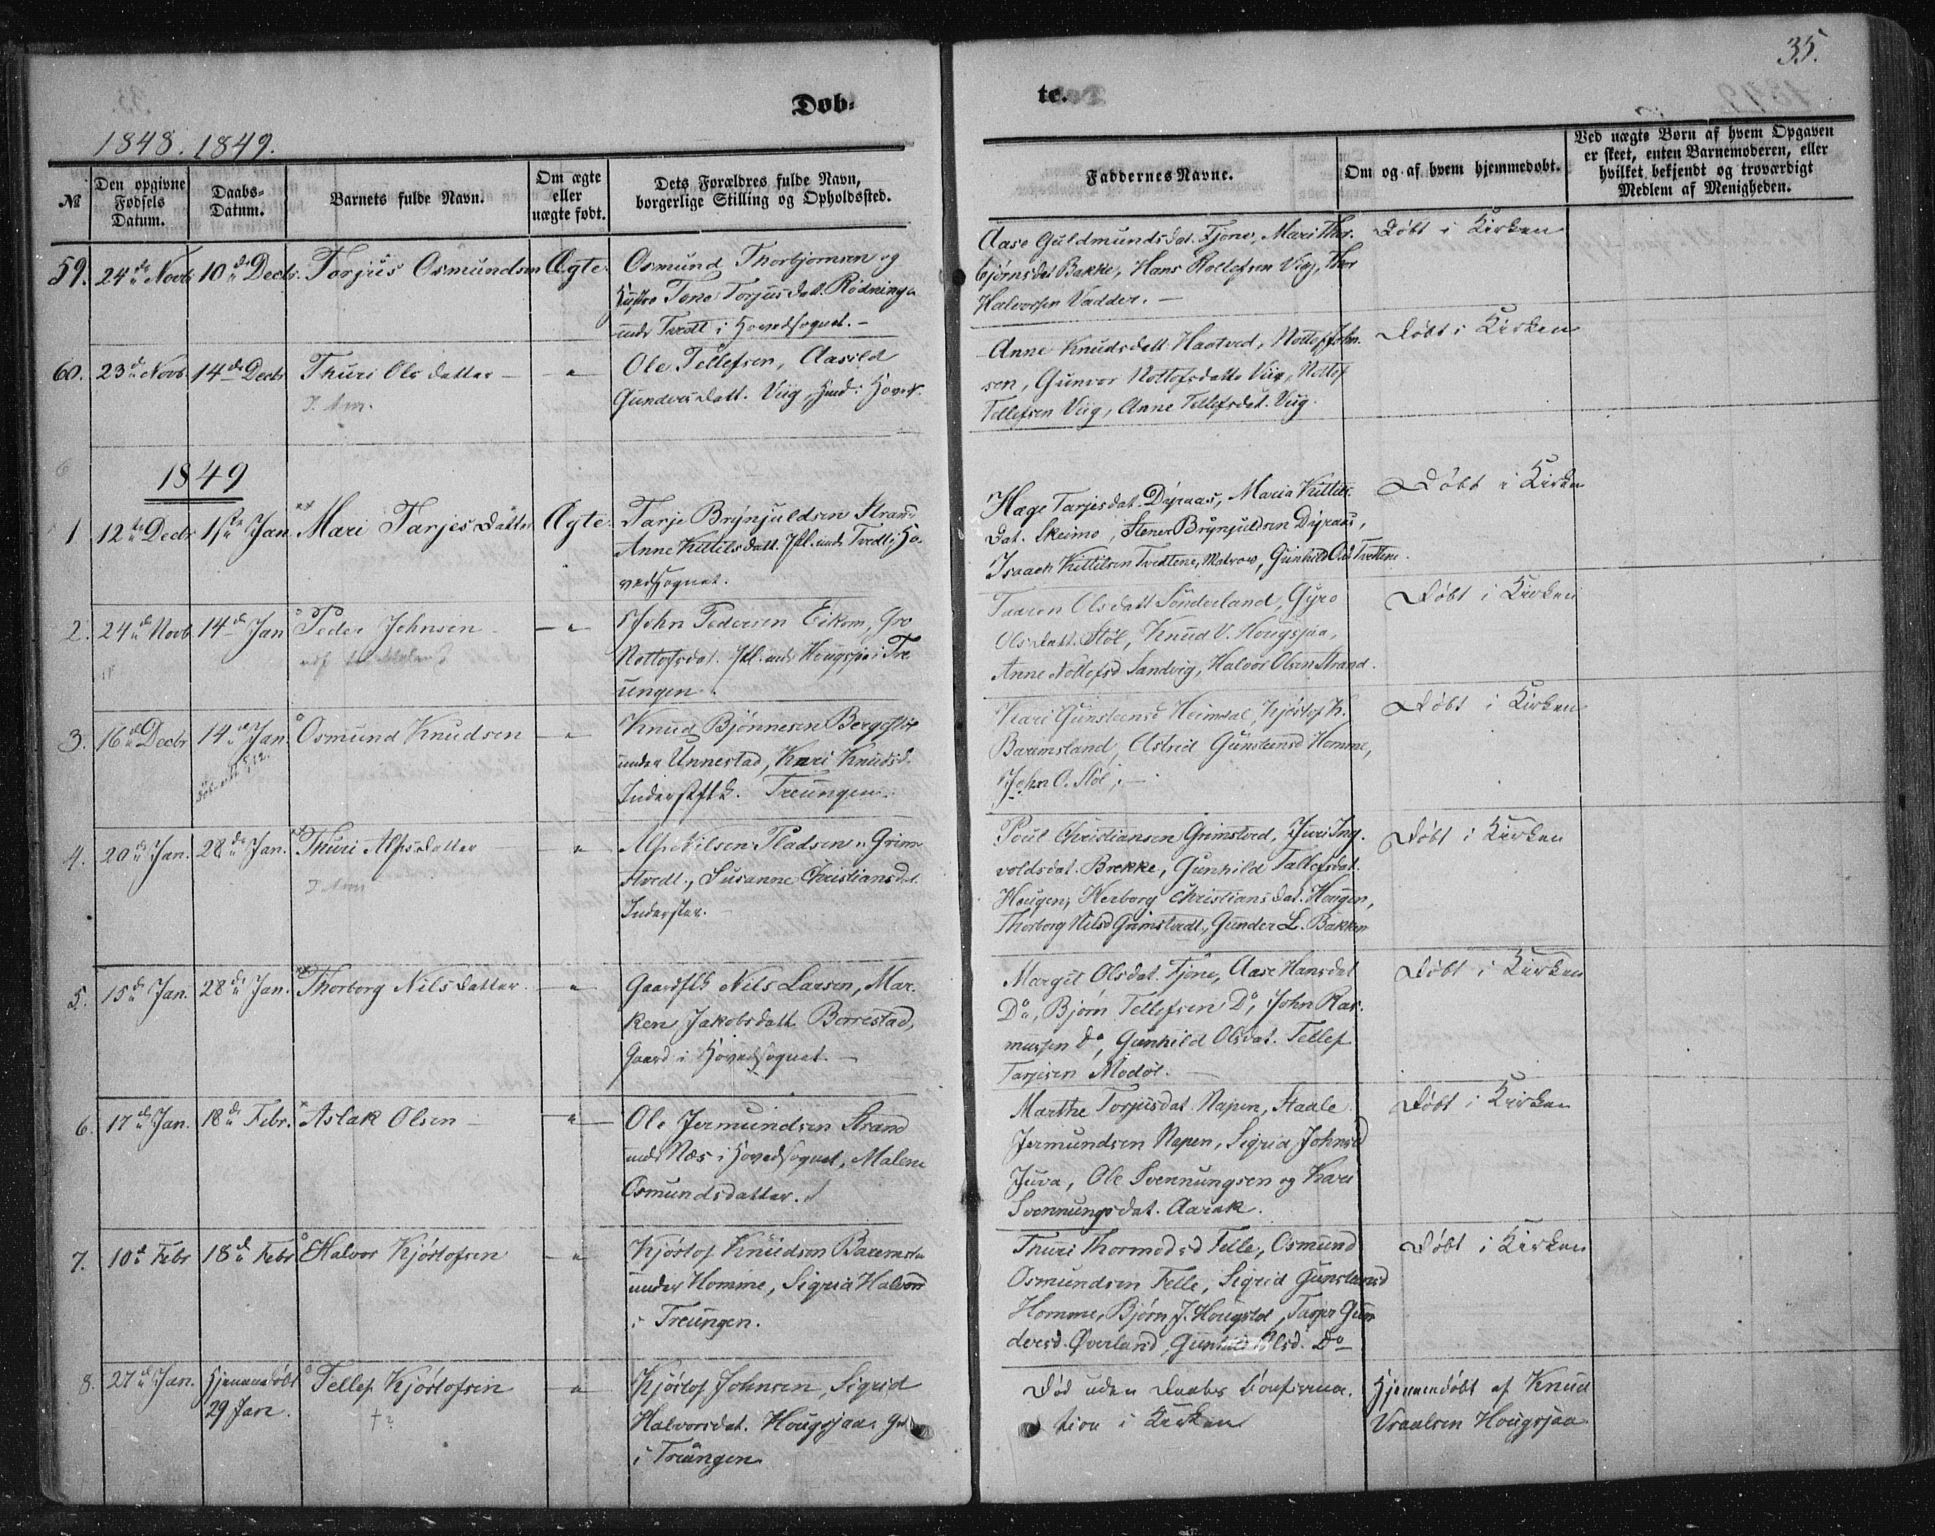 35.
Dob-
te.
1848. 1849.
№
Den opgivne Fødsels Datum.
Daabs-Datum.
Barnets fulde Navn.
Om ægte eller uægte født.
Dets Forældres fulde Navn, borgerlige Stilling og Opholdssted.
Faddernes Navne.
Om og af hvem hjemmedøbt.
Ved uægte Børn af hvem Opgaven er skeet, enten Barnemoderen, eller hvilket bekjendt og troværdigt Medlem af Menigheden.
59. 24de Novb 10de Decbr. Torjus Osmundsen Ægte.
Osmund Thorbjørnsen og
Hustro Tone Torjusdat. Rødninge
under Tvedt i Hovedsognet. –
Aase Guldmundsdat. Fjone, Mari Thor-
bjørnsdat Bakke, Hans Rollefsen Viig, Thor
Halvorsen Vadder. –
Døbt i Kirken
60. 23de Novb. 14de Decbr Thuri Olsdatter – "
Ole Tellefsen, Aasild
Gundersdatt. Viig, Hmd. i Hoveds.
Anne Knudsdatt. Haatved, Nottof John-
sen, Gunvor Nottofsdatte Viig, Nottof
Tellefsen Viig, Anne Tellefsdat. Viig.
Døbt i Kirken
1849
1. 12te Decbr 1ste Jan. Mari Tarjesdatter Ægte.
Tarje Brynjuldsen Strand
Anne Kittilsdatt. under Tvedt i Ho-
vedsognet.
Hage Tarjesdat. Dyraas, Maria Kittils-
dat. Skeimo, Stener Brynjuldsen Dyraas,
Isaach Kittilsen Tvedtene, Gunhild Tvedtene.
Døbt i Kirken
2. 24de Novb. 14de Jan Peder Johnsen – "
John Pedersen Eikom, Gro
Nottofsdat. under Hougsjaa i Tre-
ungen.
Taaren Olsdatt Sønderland, Gyro
Olsdatt. Støl, Knud V. Hougsjaa,
Anne Nottofsd Sandvig, Halvor Olsen Strand.
Døbt i Kirken
3. 16de Decbr 14de Jan. Osmund Knudsen – "
Knud Bjønnesen
under Unnestad, Kari Knudsd.
Treungen.
Kari Gunsteinsd Heimdal, Kjøstof K.
Baremsland, Astrid Gunsteinsd Homme,
John O. Støl, –
Døbt i Kirken
4. 20de Jan. 28de Jan. Thuri Alfsdatter – "
Alf Nilsen Pladsen u. Grim-
stvedt., Susanne Christiansdat.
Inderster. –
Poul Christiansen Grimstved, Juri Ing-
voldsdat. Brekke, Gunhild Tallefsdat.
Hougen, Herborg Christiansdat. Hougen,
Thorborg Nilsd Grimstvedt, Gunder L. Bakken
Døbt i Kirken
5. 15de Jan. 28de Jan. Thorborg Nilsdatter. – "
Gaardfk Nils Larsen, Mar-
ken Jakobsdatt. Borrestad,
Gaard i Hovedsognet. –
Margit Olsdat. Fjone, Aase Hansdat
Do, Bjørn Tellefsen Do, John Ras-
mussen do, Gunhild Olsdat. Tellef
Tarjesen Modøl. –
Døbt i Kirken
6. 17de Jan. 18de Febr. Aslak Olsen – "
Ole Jermundsen Strand
under Næs i Hovedsognet, Malene
Osmundsdatter.
Marthe Torjusdat. Napen, Staale
Jermundsen Napen, Sigrid Johnsd
Juva, Ole Svennungsen og Kari
Svennungsdat. Aarak.
Døbt i Kirken
7. 10de Febr 18de Febr Halvor Kjøstofsen – "
Kjøstof Knudsen Baremsla
under Homme, Sigrid Halvorsd
i Treungen.
Thuri Thormodsd Felle, Osmund
Osmundsen Felle, Sigrid Gunsteinsd
Homme, Bjørn J. Hougstøl, Tarjer Gun-
dersd. Øverland, Gunhild Olsd. Do
Døbt i Kirken
8. 27de Jan. Hjemmedøbt
29 Jan.
Tellef Kjøstofsen – "
†
Kjøstof Johnsen, Sigrid
Halvorsdat. Hougsjaa
i Treungen
Død uden Daabs Confirma-
tion i Kirken
Hjemmedøbt af Knud
Vraalsen Hougsjaa